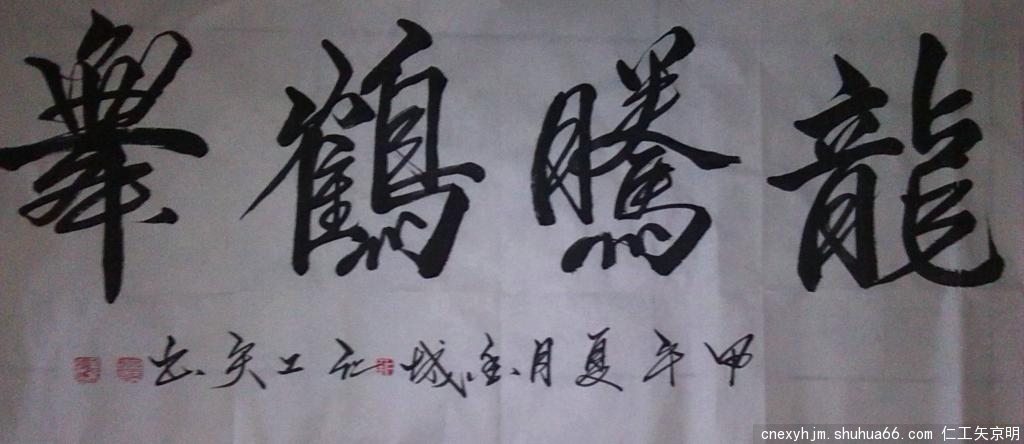 龍騰鶴舞
甲午夏月金城仁工矢书
cnexyhjm.shuhua66.com 仁工矢京明